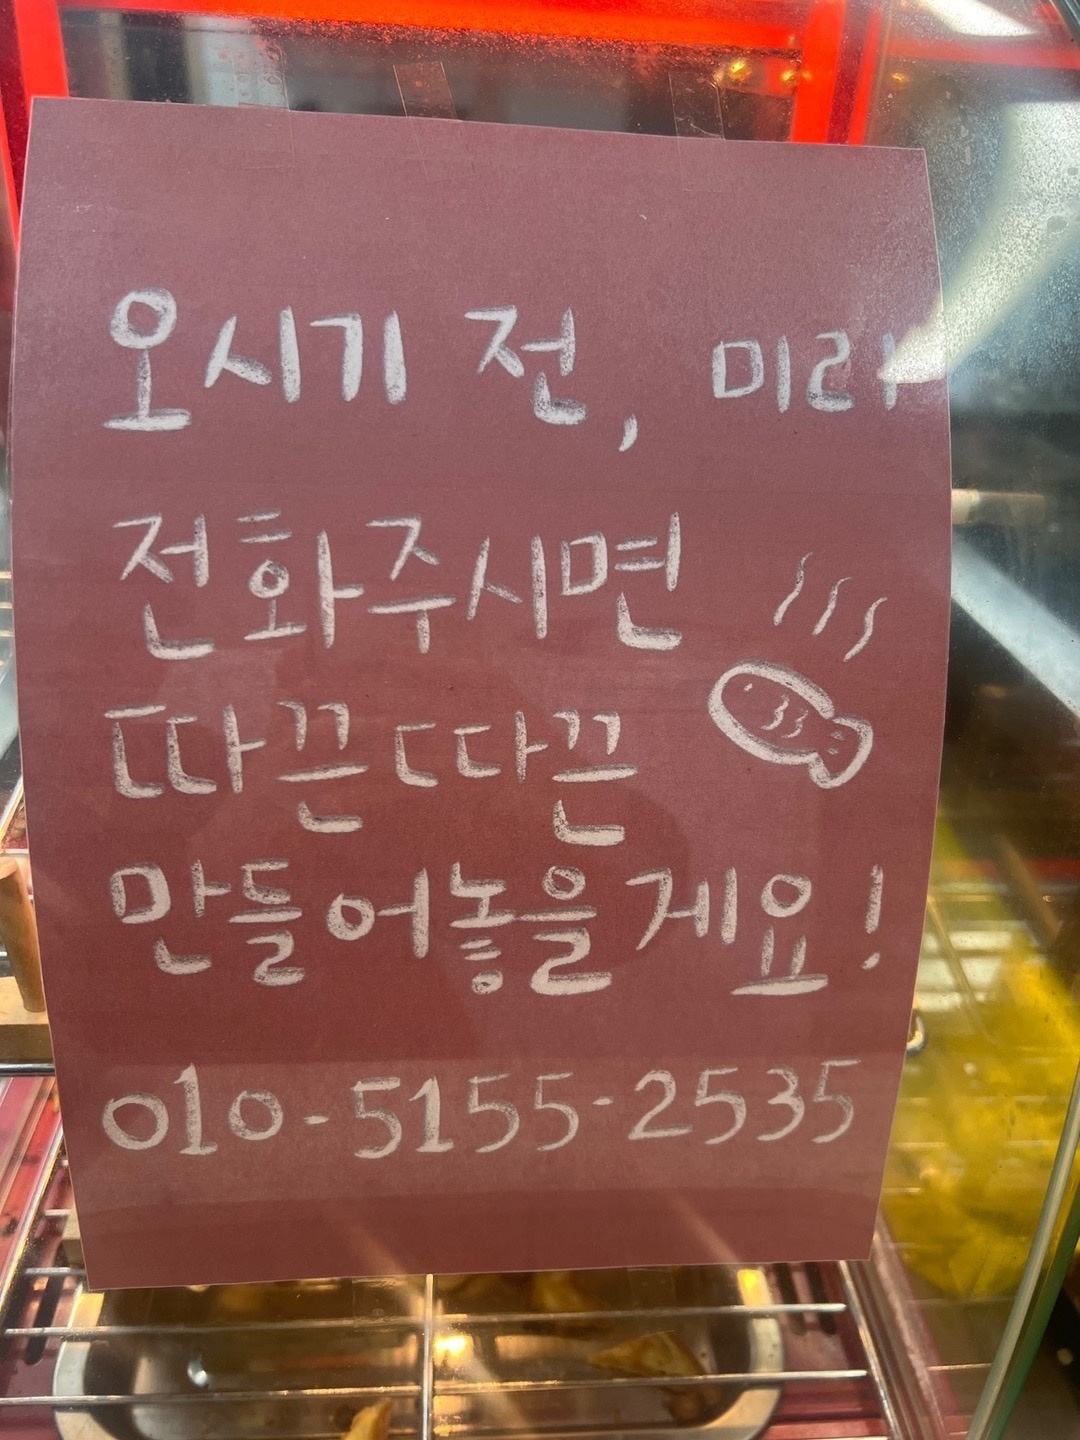 오시기 전, 미리
전화주시면
따끈따끈
만들어놓을게요!
010-5155-2535